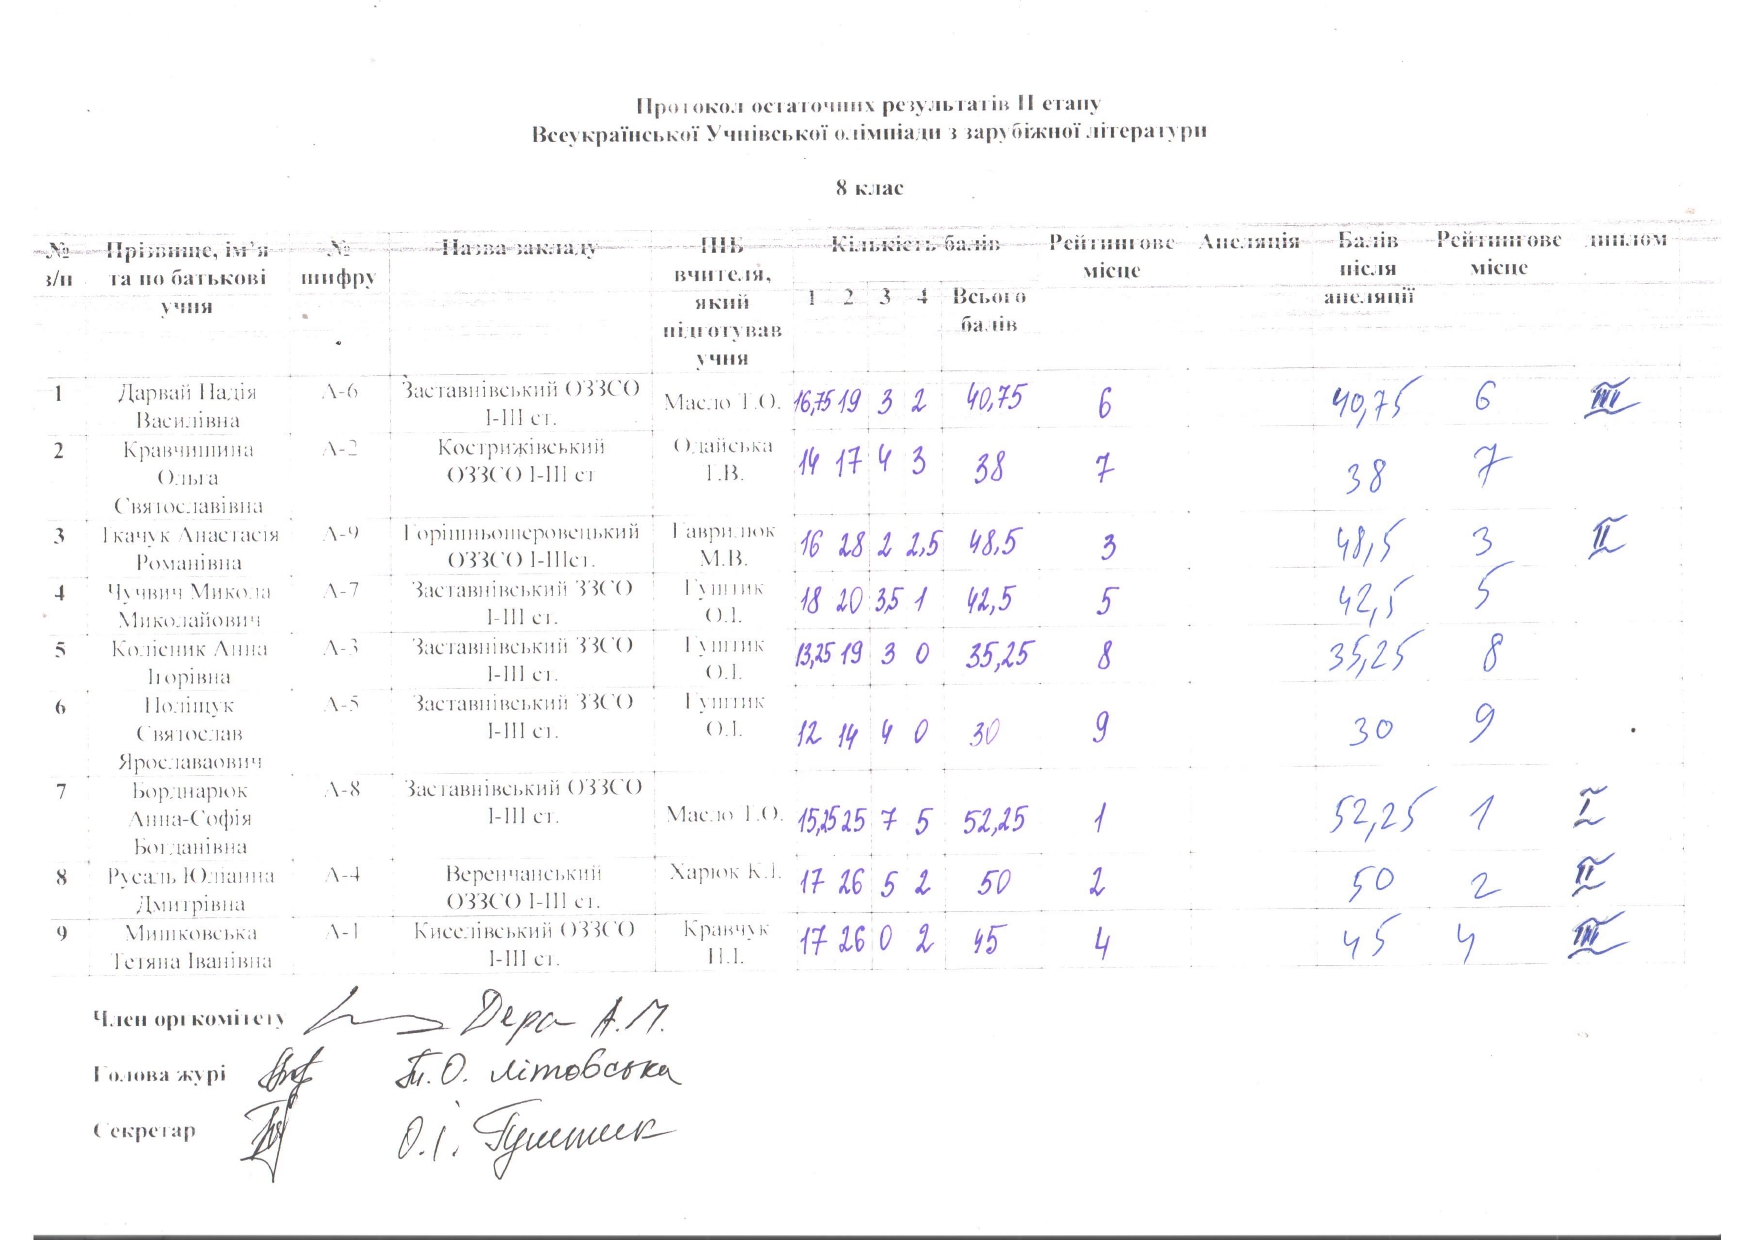 Протокол остаточних результатів ІІ етапу
Всеукраїнської Учнівської олімпіади з зарубіжної літератури
8 клас
№ з/п Прізвище, ім’я та по батькові учня № шифру Назва закладу ПІБ вчителя, який підготував учня Кількість балів 1 2 3 4 Всього балів Рейтингове місце Апеляція Балів після апеляції Рейтингове місце диплом
1 Дарвай Надія Василівна А-6 Заставнівський ОЗЗСО І-ІІІ ст. Масло Т.О. 16,75 19 3 2 40,75 6 40,75 6 ІІІ
2 Кравчишина Ольга Святославівна А-2 Кострижівський ОЗЗСО І-ІІІ ст Одайська Г.В. 14 17 4 3 38 7 38 7
3 Ткачук Анастасія Романівна А-9 Горішньошеровецький ОЗЗСО І-ІІІст. Гаврилюк М.В. 16 28 2 2,5 48,5 3 48,5 3 ІІ
4 Чучвич Микола Миколайович А-7 Заставнівський ЗЗСО І-ІІІ ст. Гуштик О.І. 18 20 3,5 1 42,5 5 42,5 5
5 Колісник Анна Ігорівна А-3 Заставнівський ЗЗСО І-ІІІ ст. Гуштик О.І. 13,25 19 3 0 35,25 8 35,25 8
6 Поліщук Святослав Ярославаович А-5 Заставнівський ЗЗСО І-ІІІ ст. Гуштик О.І. 12 14 4 0 30 9 30 9
7 Борднарюк Анна-Софія Богданівна А-8 Заставнівський ОЗЗСО І-ІІІ ст. Масло Т.О. 15,25 25 7 5 52,25 1 52,25 1 І
8 Русаль Юліанна Дмитрівна А-4 Веренчанський ОЗЗСО І-ІІІ ст. Харюк К.І. 17 26 5 2 50 2 50 2 ІІ
9 Мишковська Тетяна Іванівна А-1 Киселівський ОЗЗСО І-ІІІ ст. Кравчук Н.І. 17 26 0 2 45 4 45 4 ІІІ
Член оргкомітету Дера А.М.
Голова журі Т.О. Літовська
Секретар О.І. Гуштик